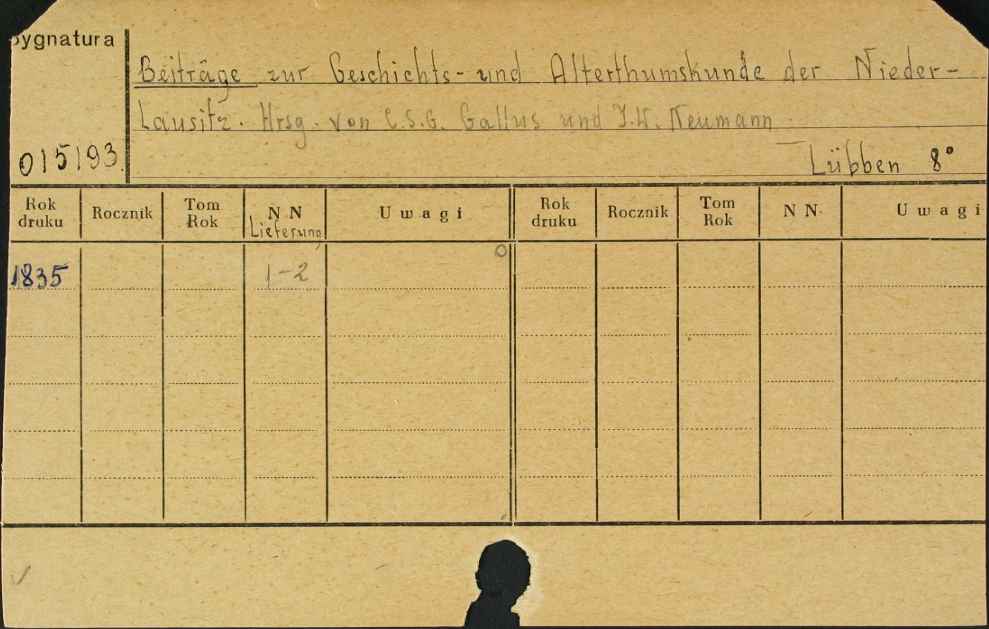 Sygnatura
Beiträge zur Geschichts- und Alterthumskunde der Nieder-
Lausitz. Hrsg. von C.S.G. Gallus und J.W. Neumann
015193.
Lübben 8°
Rok druku Rocznik Tom Rok NN Lieferung Uwagi Rok druku Rocznik Tom Rok NN. Uwagi
1835 1-2